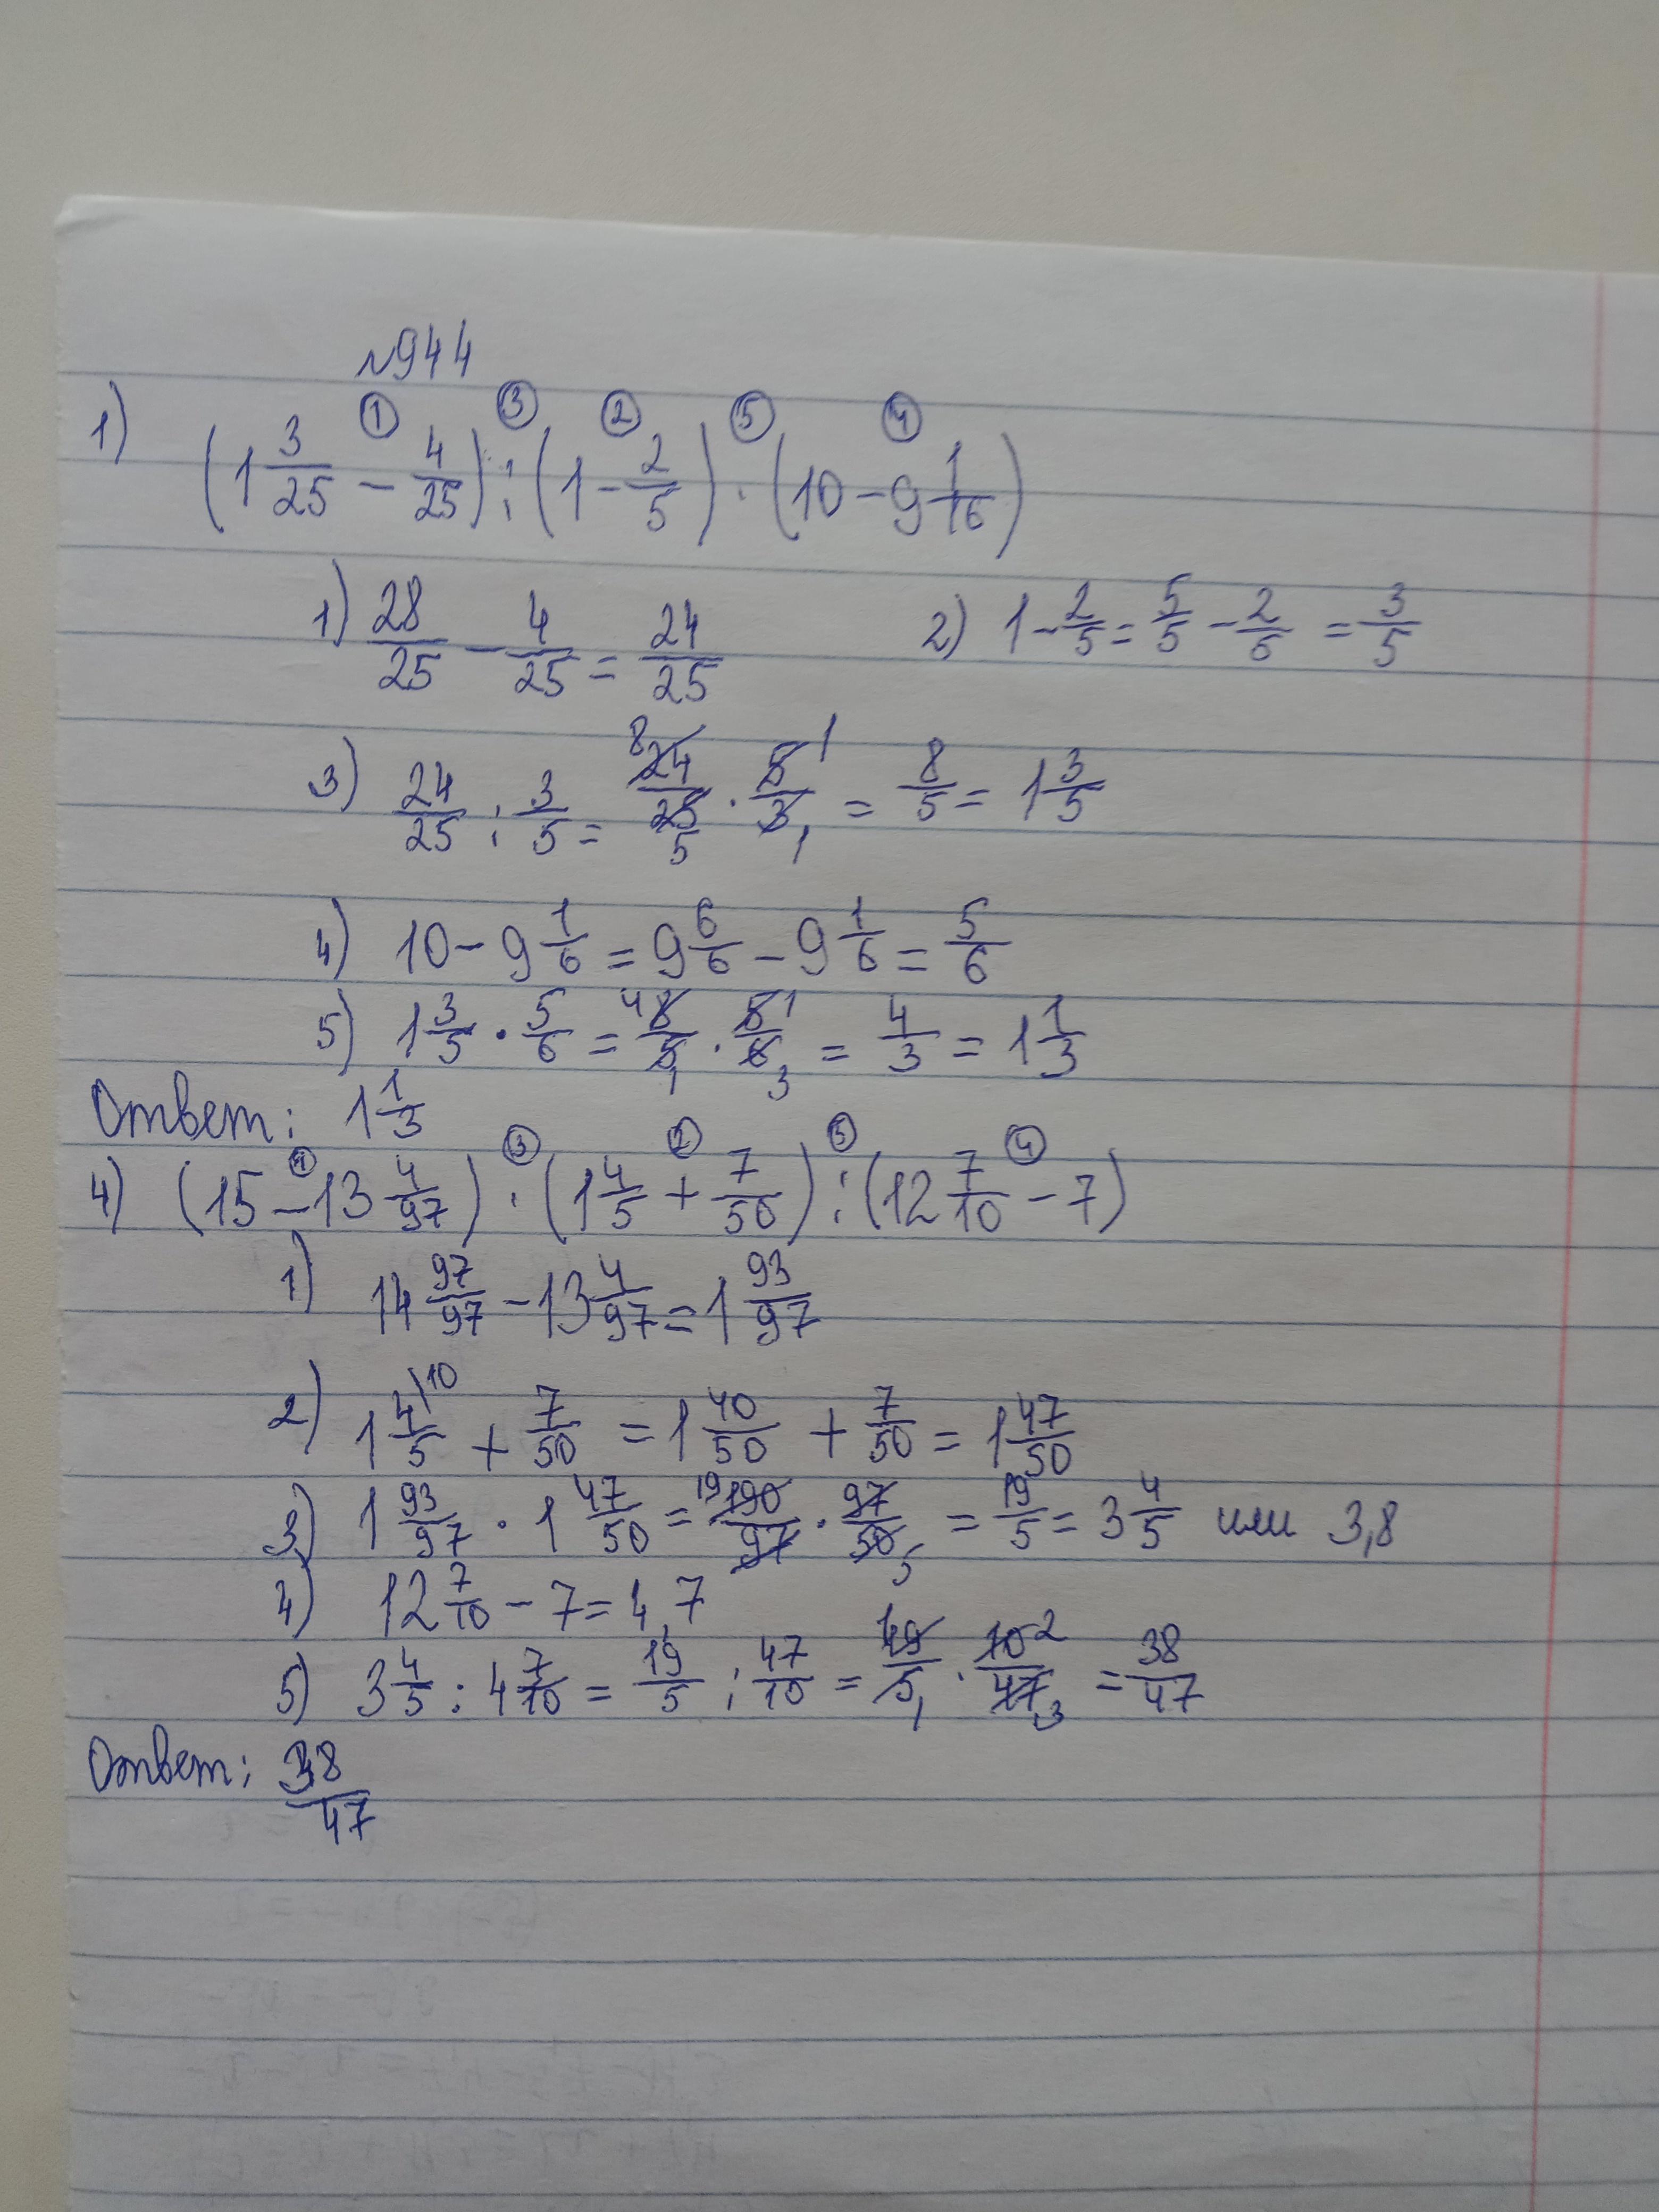 №944
1) (1 3/25 - 4/25) : (1 - 2/5) · (10 - 9 1/6)
1) 28/25 - 4/25 = 24/25 2) 1 - 2/5 = 5/5 - 2/5 = 3/5
3) 24/25 : 3/5 = 24/25 · 5/3 = 8/5 = 1 3/5
4) 10 - 9 1/6 = 9 6/6 - 9 1/6 = 5/6
5) 1 3/5 · 5/6 = 8/5 · 5/6 = 4/3 = 1 1/3
Ответ: 1 1/3
4) (15 - 13 4/97) · (1 4/5 + 7/50) : (12 7/10 - 7)
1) 14 97/97 - 13 4/97 = 1 93/97
2) 1 4/5 + 7/50 = 1 40/50 + 7/50 = 1 47/50
3) 1 93/97 · 1 47/50 = 190/97 · 97/50 = 19/5 = 3 4/5 или 3,8
4) 12 7/10 - 7 = 4,7
5) 3 4/5 : 4 7/10 = 19/5 : 47/10 = 19/5 · 10/47 = 38/47
Ответ: 38/47